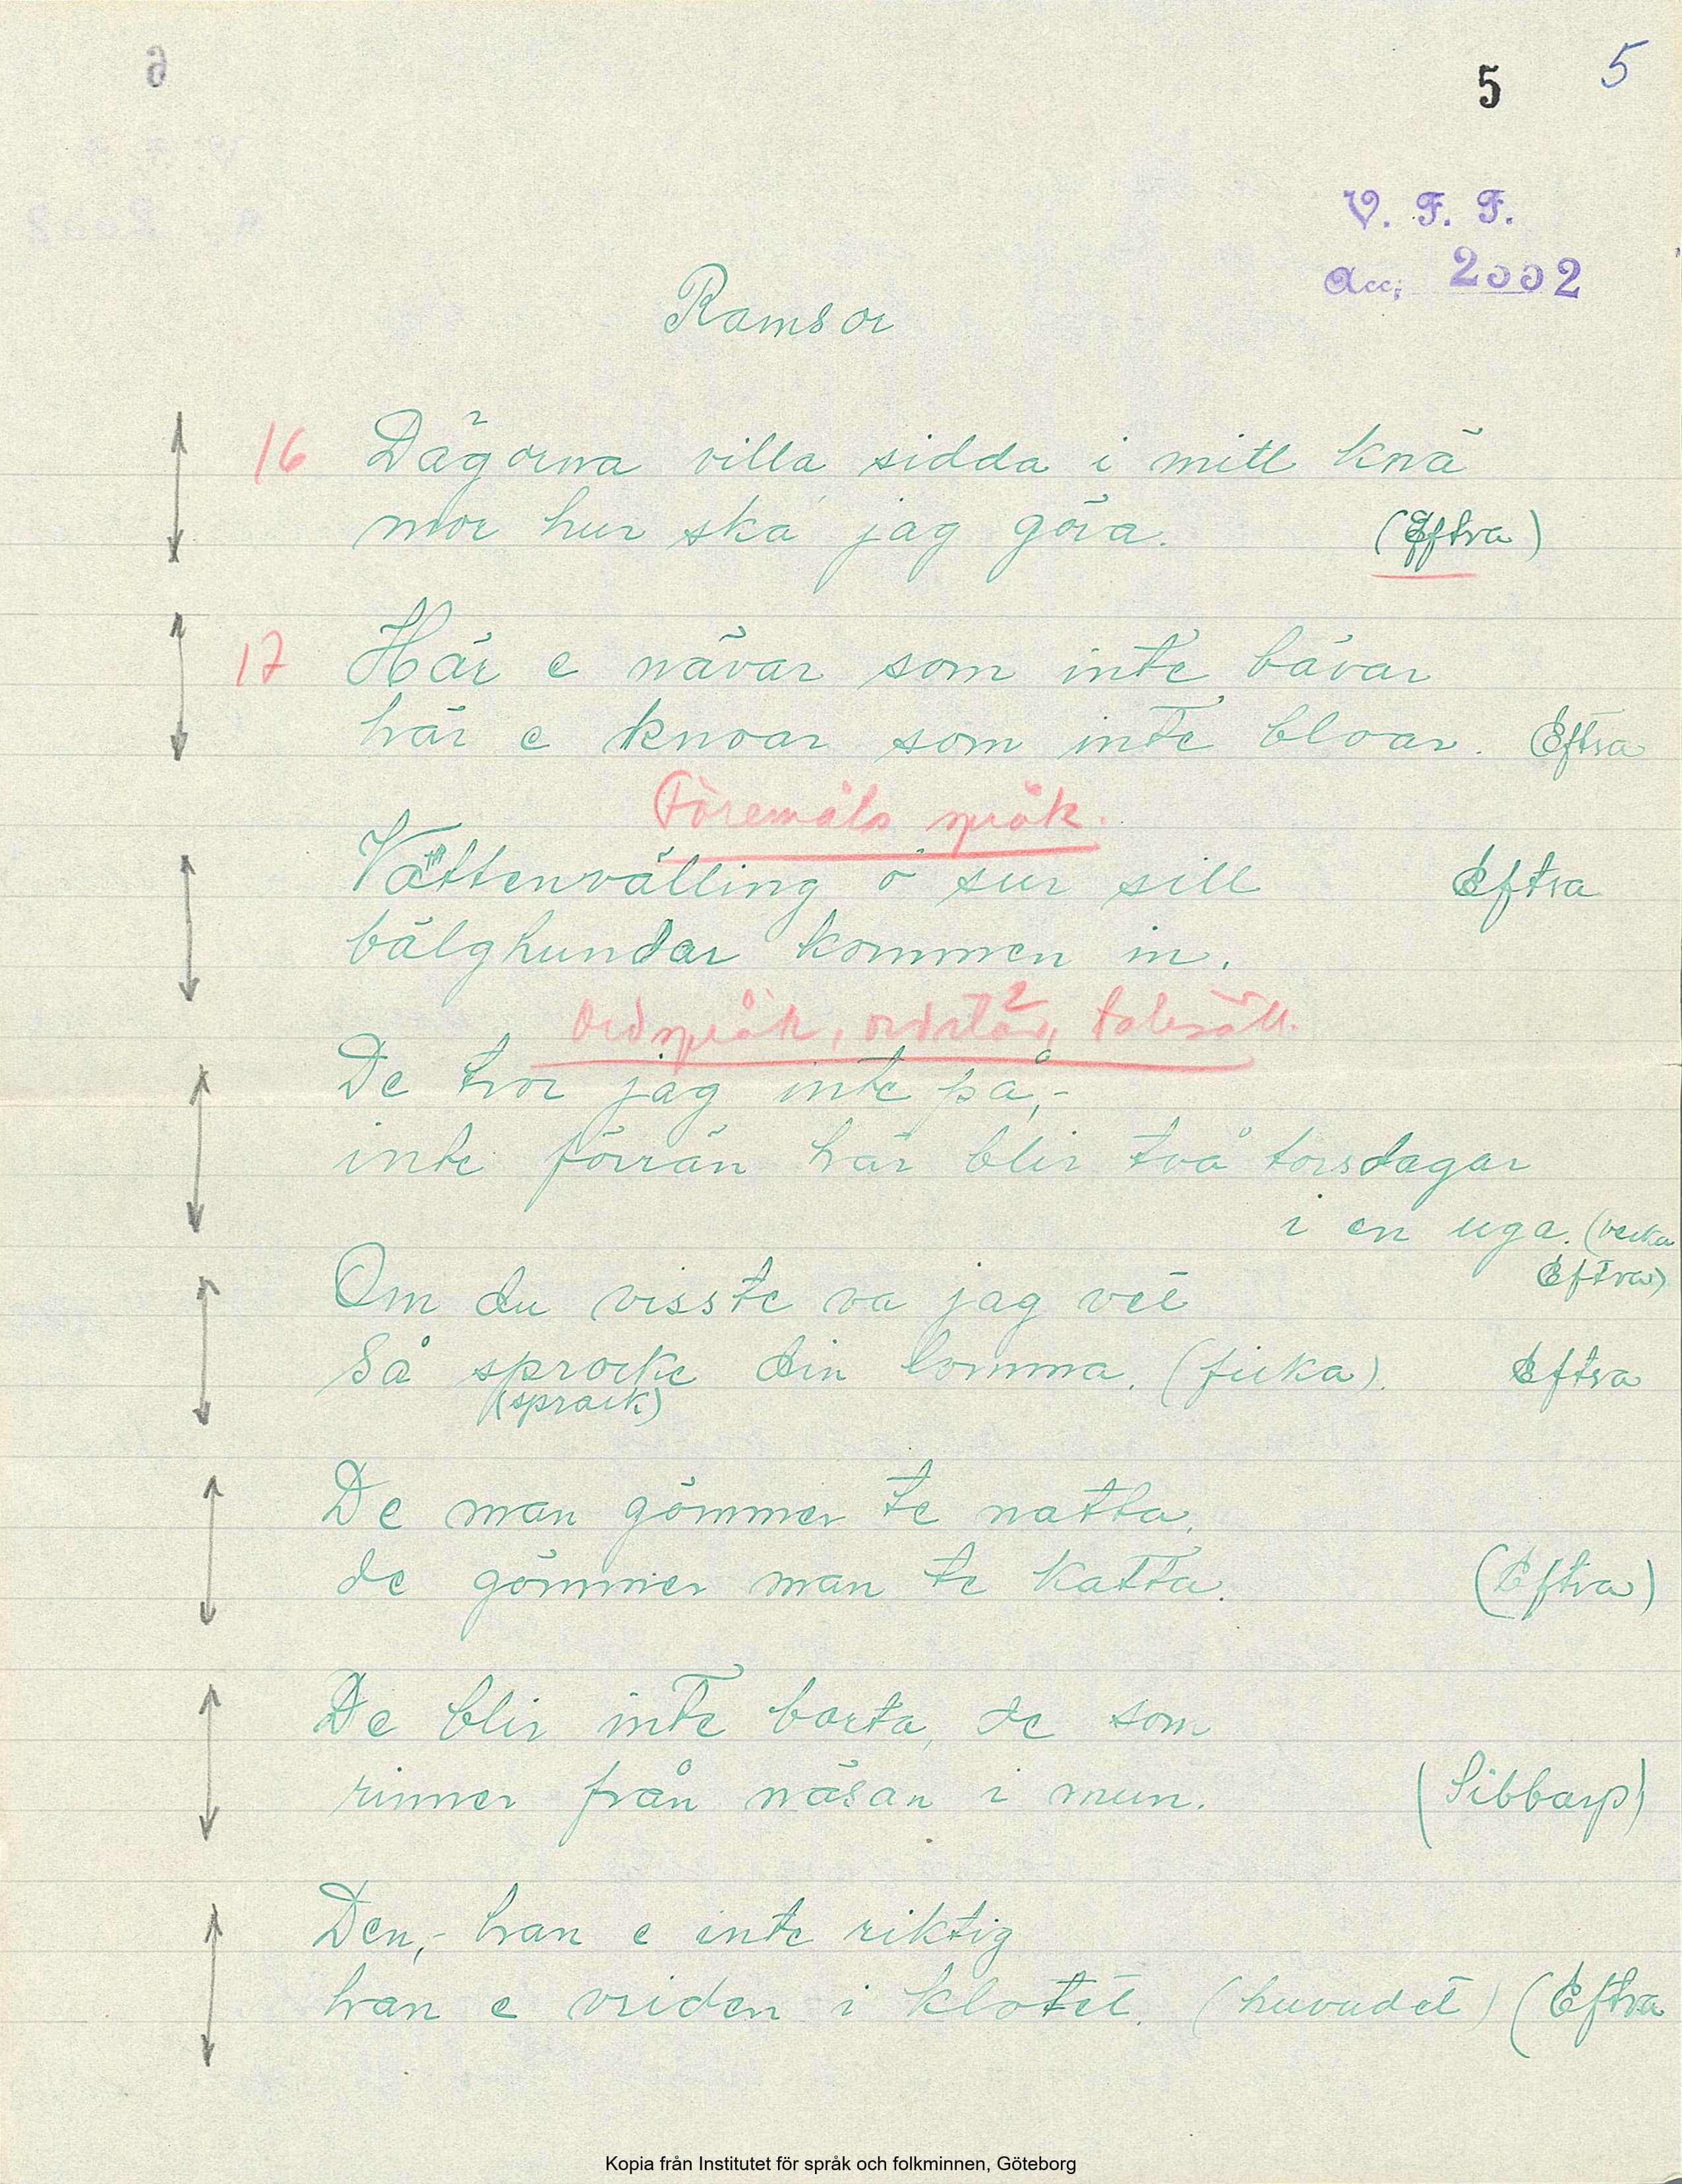 5 5
V. F. F.
Acc; 2002
Ramsor
16 Dägorna villa sidda i mitt knä
mor hur ska jag göra. (Eftra)
17 Här e nävar som inte bävar
här e knoar som inte bloar. Eftra
Föremåls språk.
Vattenvälling ö sur sill Eftra
bälghundar kommen in.
Ordspråk, ordstäv, talesätt.
De tror jag inte på,-
inte förrän här blir två torsdagar
i en uga. (vecka
Eftra)
Om du visste va jag vet
Så sprocke din lomma. (ficka). Eftra
(sprack)
De man gömmer te natta,
de gömmer man te katta. (Eftra)
De blir inte borta, de som
rinner från näsan i mun. (Sibbarp)
Den,- han e inte riktig
han e vriden i klotet. (huvudet) (Eftra
Kopia från Institutet för språk och folkminnen, Göteborg